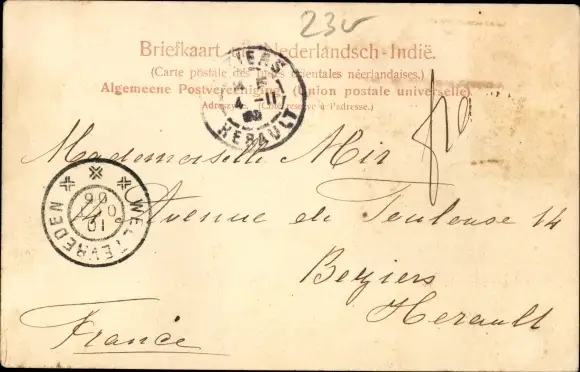 23
Briefkaart uit Nederlandsch-Indië.
(Carte postale des Indes orientales néerlandaises.)
Algemeene Postvereeniging (Union postale universelle).
Adreszijde. (Côté réservé à l'adresse.)
4 -11
HERAULT
Mademoiselle Mir
WELTEVREDEN
Avenue de Toulouse 14
Beziers
Herault
France